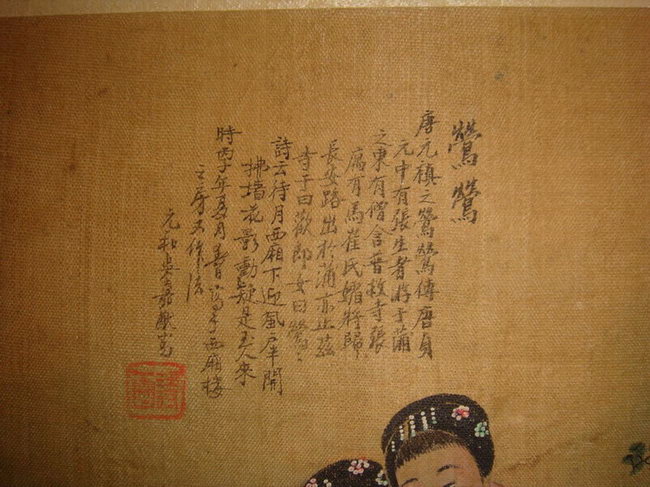 鶯鶯
唐元稹之鶯鶯傳唐貞
元中有張生者游于蒲
之東有僧舍普救寺張
寓有焉崔氏孀將歸
長安路出於蒲亦止茲
寺子曰歡郎女曰鶯〻
詩云待月西廂下迎風户半開
拂墙花影動疑是玉人來
時丙子年夏月
西廂樓
主人
元和